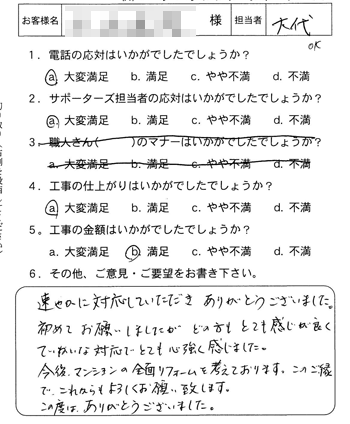 お客様名 様 担当者 大代
OK
1．電話の応対はいかがでしたでしょうか？
a. 大変満足 b. 満足 c. やや不満 d. 不満
2．サポーターズ担当者の応対はいかがでしたでしょうか？
a. 大変満足 b. 満足 c. やや不満 d. 不満
3．職人さん( )のマナーはいかがでしたでしょうか？
a. 大変満足 b. 満足 c. やや不満 d. 不満
4．工事の仕上がりはいかがでしたでしょうか？
a. 大変満足 b. 満足 c. やや不満 d. 不満
5．工事の金額はいかがでしたでしょうか？
a. 大変満足 b. 満足 c. やや不満 d. 不満
6．その他、ご意見・ご要望をお書き下さい。
速やかに対応していただき ありがとうございました。
初めてお願いしましたが どの方も とても感じが良く
ていねいな対応でとても心強く感じました。
今後、マンションの全面リフォームを考えております。このご縁
で、これからもよろしくお願い致します。
この度は、ありがとうございました。